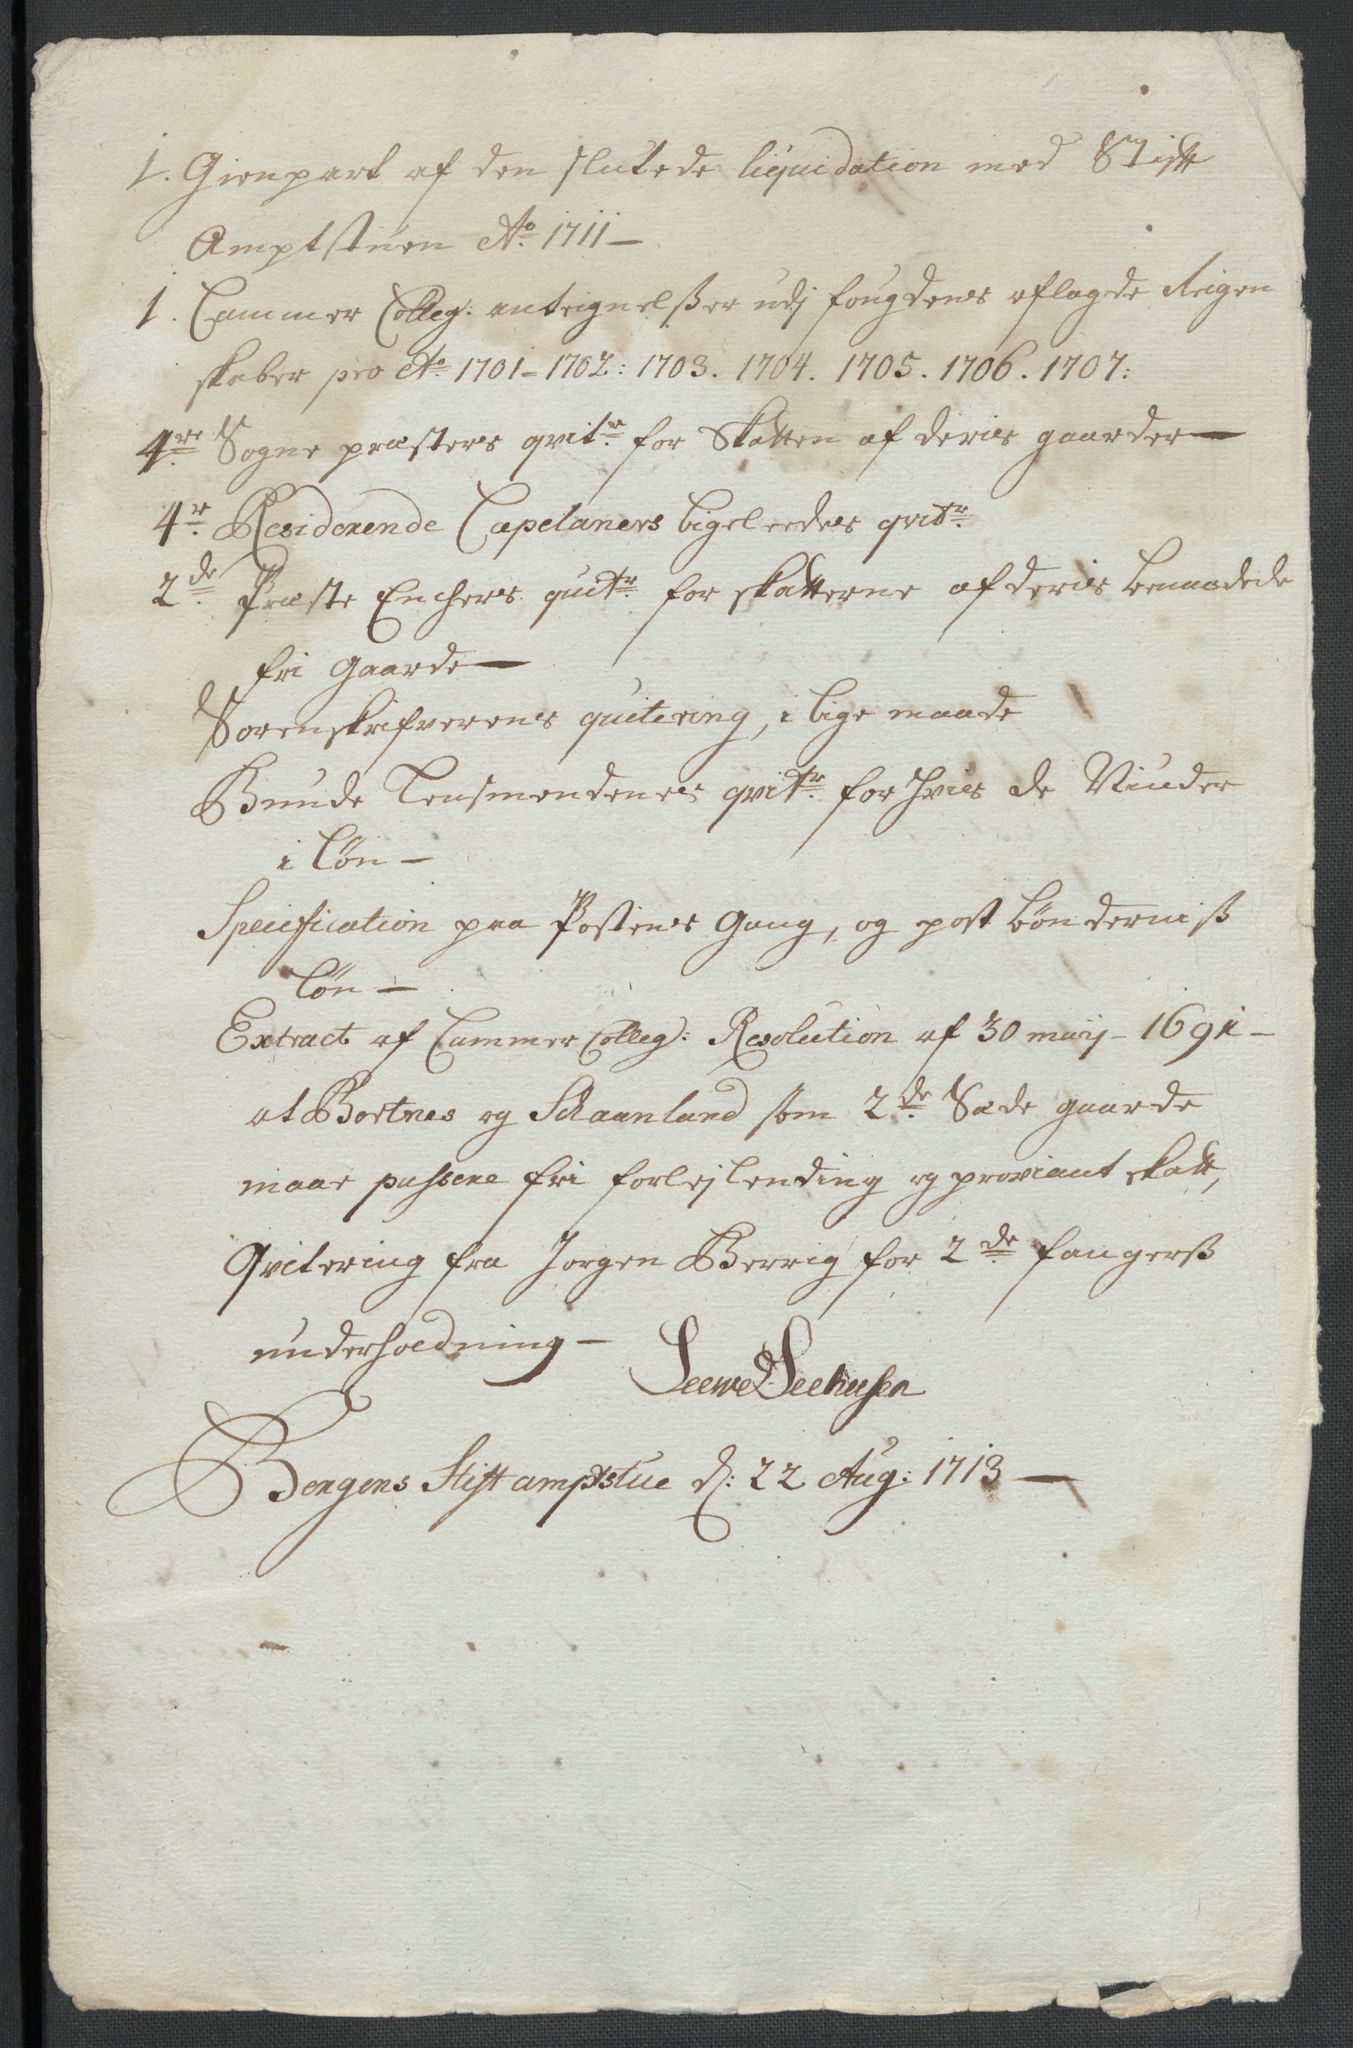 1. Gienpart af den slutede liquidation med Stift
Amptstuen Ao. 1711 —
1. Cammer Colleg: antegnelsßer udj fougdens aflagde Reigen
skaber pro Ao. 1701 - 1702: 1703. 1704. 1705. 1706. 1707:
4re Sogne præsters qvitr. for Skatten af deris gaarder —
4r. Residerende Capelaners ligeleedes qvitr.
2de. Præste Enchers quitr. for skatterne af deris benaadede
fri gaarde —
Sorenskrifverens quitering, i lige maade
Bunde Lensmendenes qvitr. for hvis de Niuder
i Løn —
Specification paa Postens Gang, og post bønderniß
Løn —
Extract af Cammer Colleg: Resolution af 30 maij - 1691 -
at Bortnes og Schaanland som 2de. Sæde gaarde
maae passere fri forlejlending og proviant skatt,
Qvitering fra Jorgen Berrig for 2de fangerß
underholdning —
Seewe Seehusen
Bergens Stiftamptstue d: 22 Aug: 1713 —